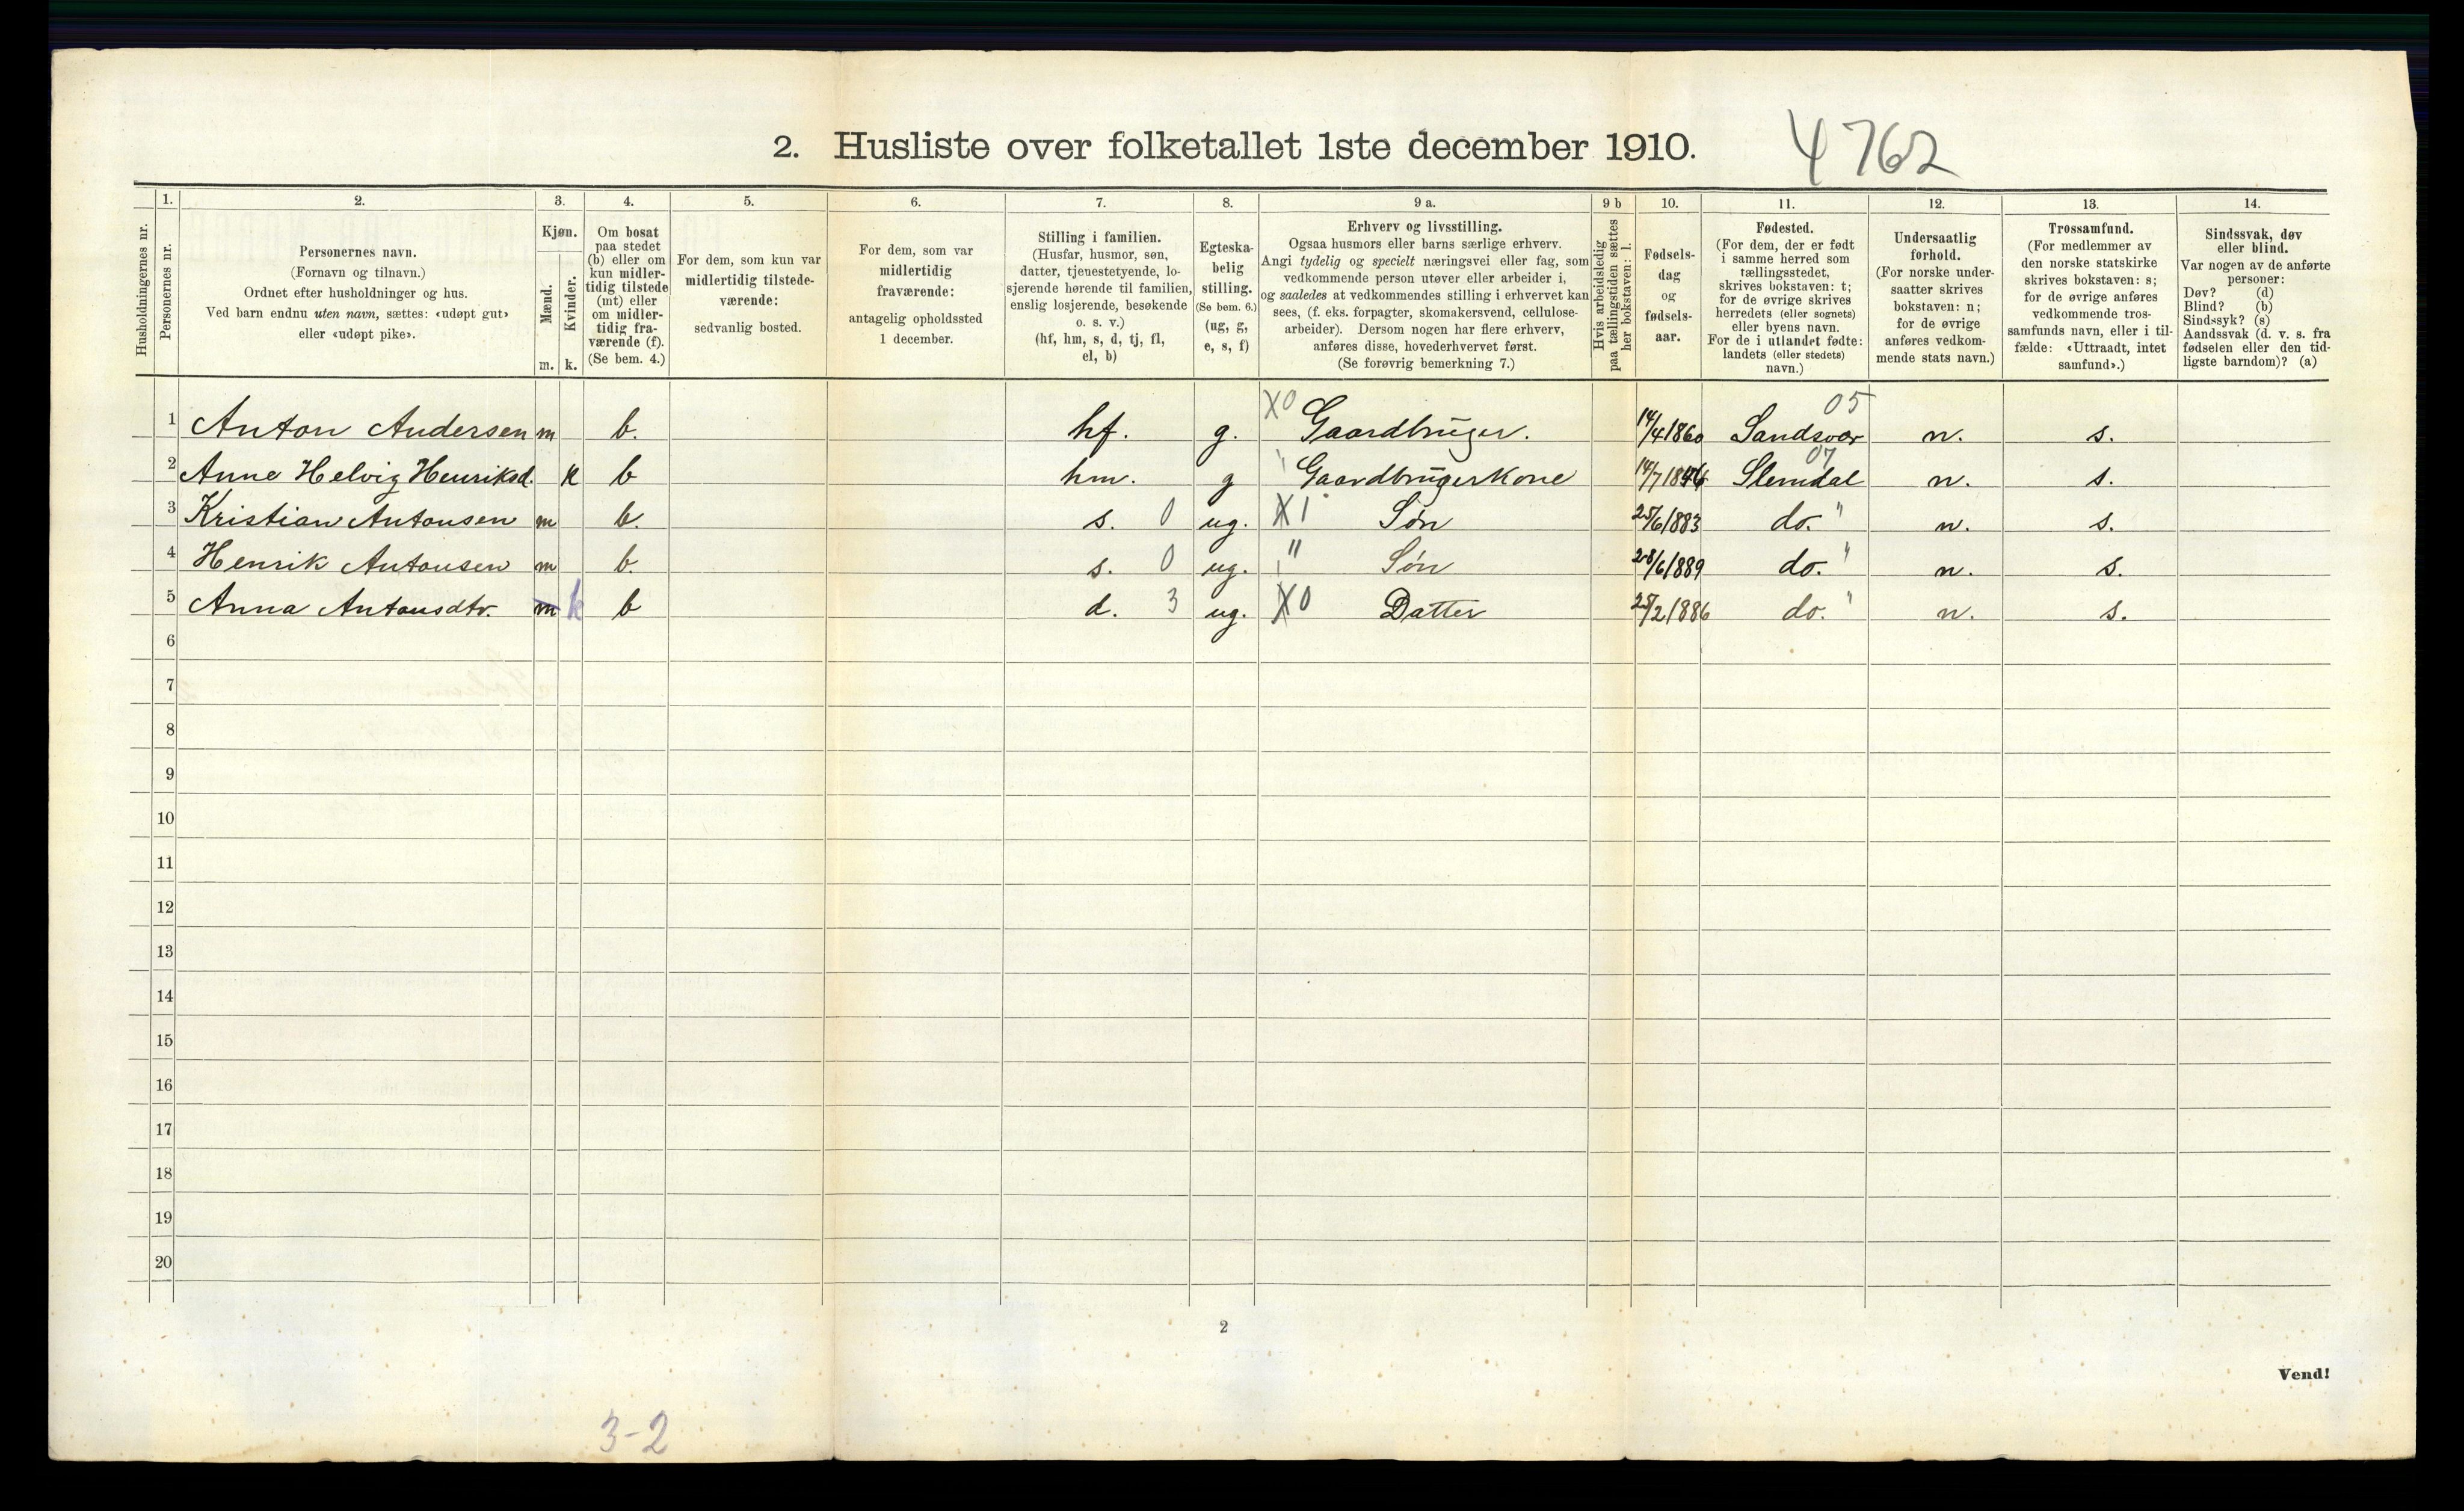 2. Husliste over folketallet 1ste december 1910.
4762
Husholdningernes nr.
1.
Personernes nr.
2.
Personernes navn.
(Fornavn og tilnavn.)
Ordnet efter husholdninger og hus.
Ved barn endnu uten navn, sættes: «udøpt gut»
eller «udøpt pike».
3.
Kjøn.
Mænd.
m.
Kvinder.
k.
4.
Om bosat
paa stedet
(b) eller om
kun midler-
tidig tilstede
(mt) eller
om midler-
tidig fra-
værende (f).
(Se bem. 4.)
5.
For dem, som kun var
midlertidig tilstede-
værende:
sedvanlig bosted.
6.
For dem, som var
midlertidig
fraværende:
antagelig opholdssted
1 december.
7.
Stilling i familien.
(Husfar, husmor, søn,
datter, tjenestetyende, lo-
sjerende hørende til familien,
enslig losjerende, besøkende
o. s. v.)
(hf, hm, s, d, tj, fl,
el, b)
8.
Egteska-
belig
stilling.
(Se bem. 6.)
(ug, g,
e, s, f)
9 a.
Erhverv og livsstilling.
Ogsaa husmors eller barns særlige erhverv.
Angi tydelig og specielt næringsvei eller fag, som
vedkommende person utøver eller arbeider i,
og saaledes at vedkommendes stilling i erhvervet kan
sees, (f. eks. forpagter, skomakersvend, cellulose-
arbeider). Dersom nogen har flere erhverv,
anføres disse, hovederhvervet først.
(Se forøvrig bemerkning 7.)
9 b
Hvis arbeidsledig
paa tællingstiden sættes
her bokstaven: l.
10.
Fødsels-
dag
og
fødsels-
aar.
11.
Fødested.
(For dem, der er født
i samme herred som
tællingsstedet,
skrives bokstaven: t;
for de øvrige skrives
herredets (eller sognets)
eller byens navn.
For de i utlandet fødte:
landets (eller stedets)
navn.)
12.
Undersaatlig
forhold.
(For norske under-
saatter skrives
bokstaven: n;
for de øvrige
anføres vedkom-
mende stats navn.)
13.
Trossamfund.
(For medlemmer av
den norske statskirke
skrives bokstaven: s;
for de øvrige anføres
vedkommende tros-
samfunds navn, eller i til-
fælde: «Uttraadt, intet
samfund».)
14.
Sindssvak, døv
eller blind.
Var nogen av de anførte
personer:
Døv? (d)
Blind? (b)
Sindssyk? (s)
Aandssvak (d. v. s. fra
fødselen eller den tid-
ligste barndom)? (a)
1 Anton Andersen m b. hf. g. X0 Gaardbruger. 14/4 1860 Sandsvær 05 n. s.
2 Anne Helvig Henriksd. k b hm. g " Gaardbrugerkone 14/7 1846 Slemdal 07 n. s.
3 Kristian Antonsen m b. s. 0 ug. X1 Søn 25/6 1883 do. " n. s.
4 Henrik Antonsen m b. s. 0 ug. " Søn 28/6 1889 do. " n. s.
5 Anna Antonsdtr. m k b d. 3 ug. X0 Datter 25/2 1886 do. " n. s.
6
7
8
9
10
11
12
13
14
15
16
17
18
19
20
2
Vend!
3-2